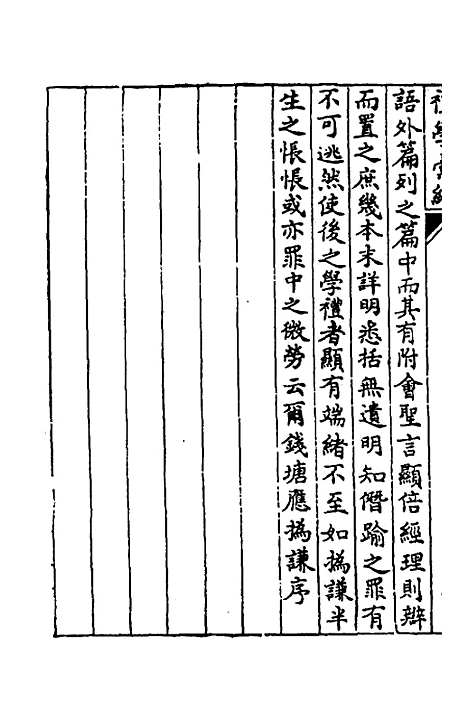 禮學彙編
語外篇列之篇中而其有附會聖言顯倍經理則辨
而置之庶幾本末詳明悉括無遺明知僭踰之罪有
不可逃然使後之學禮者顯有端緒不至如撝謙半
生之悵悵或亦罪中之微勞云爾錢塘應撝謙序